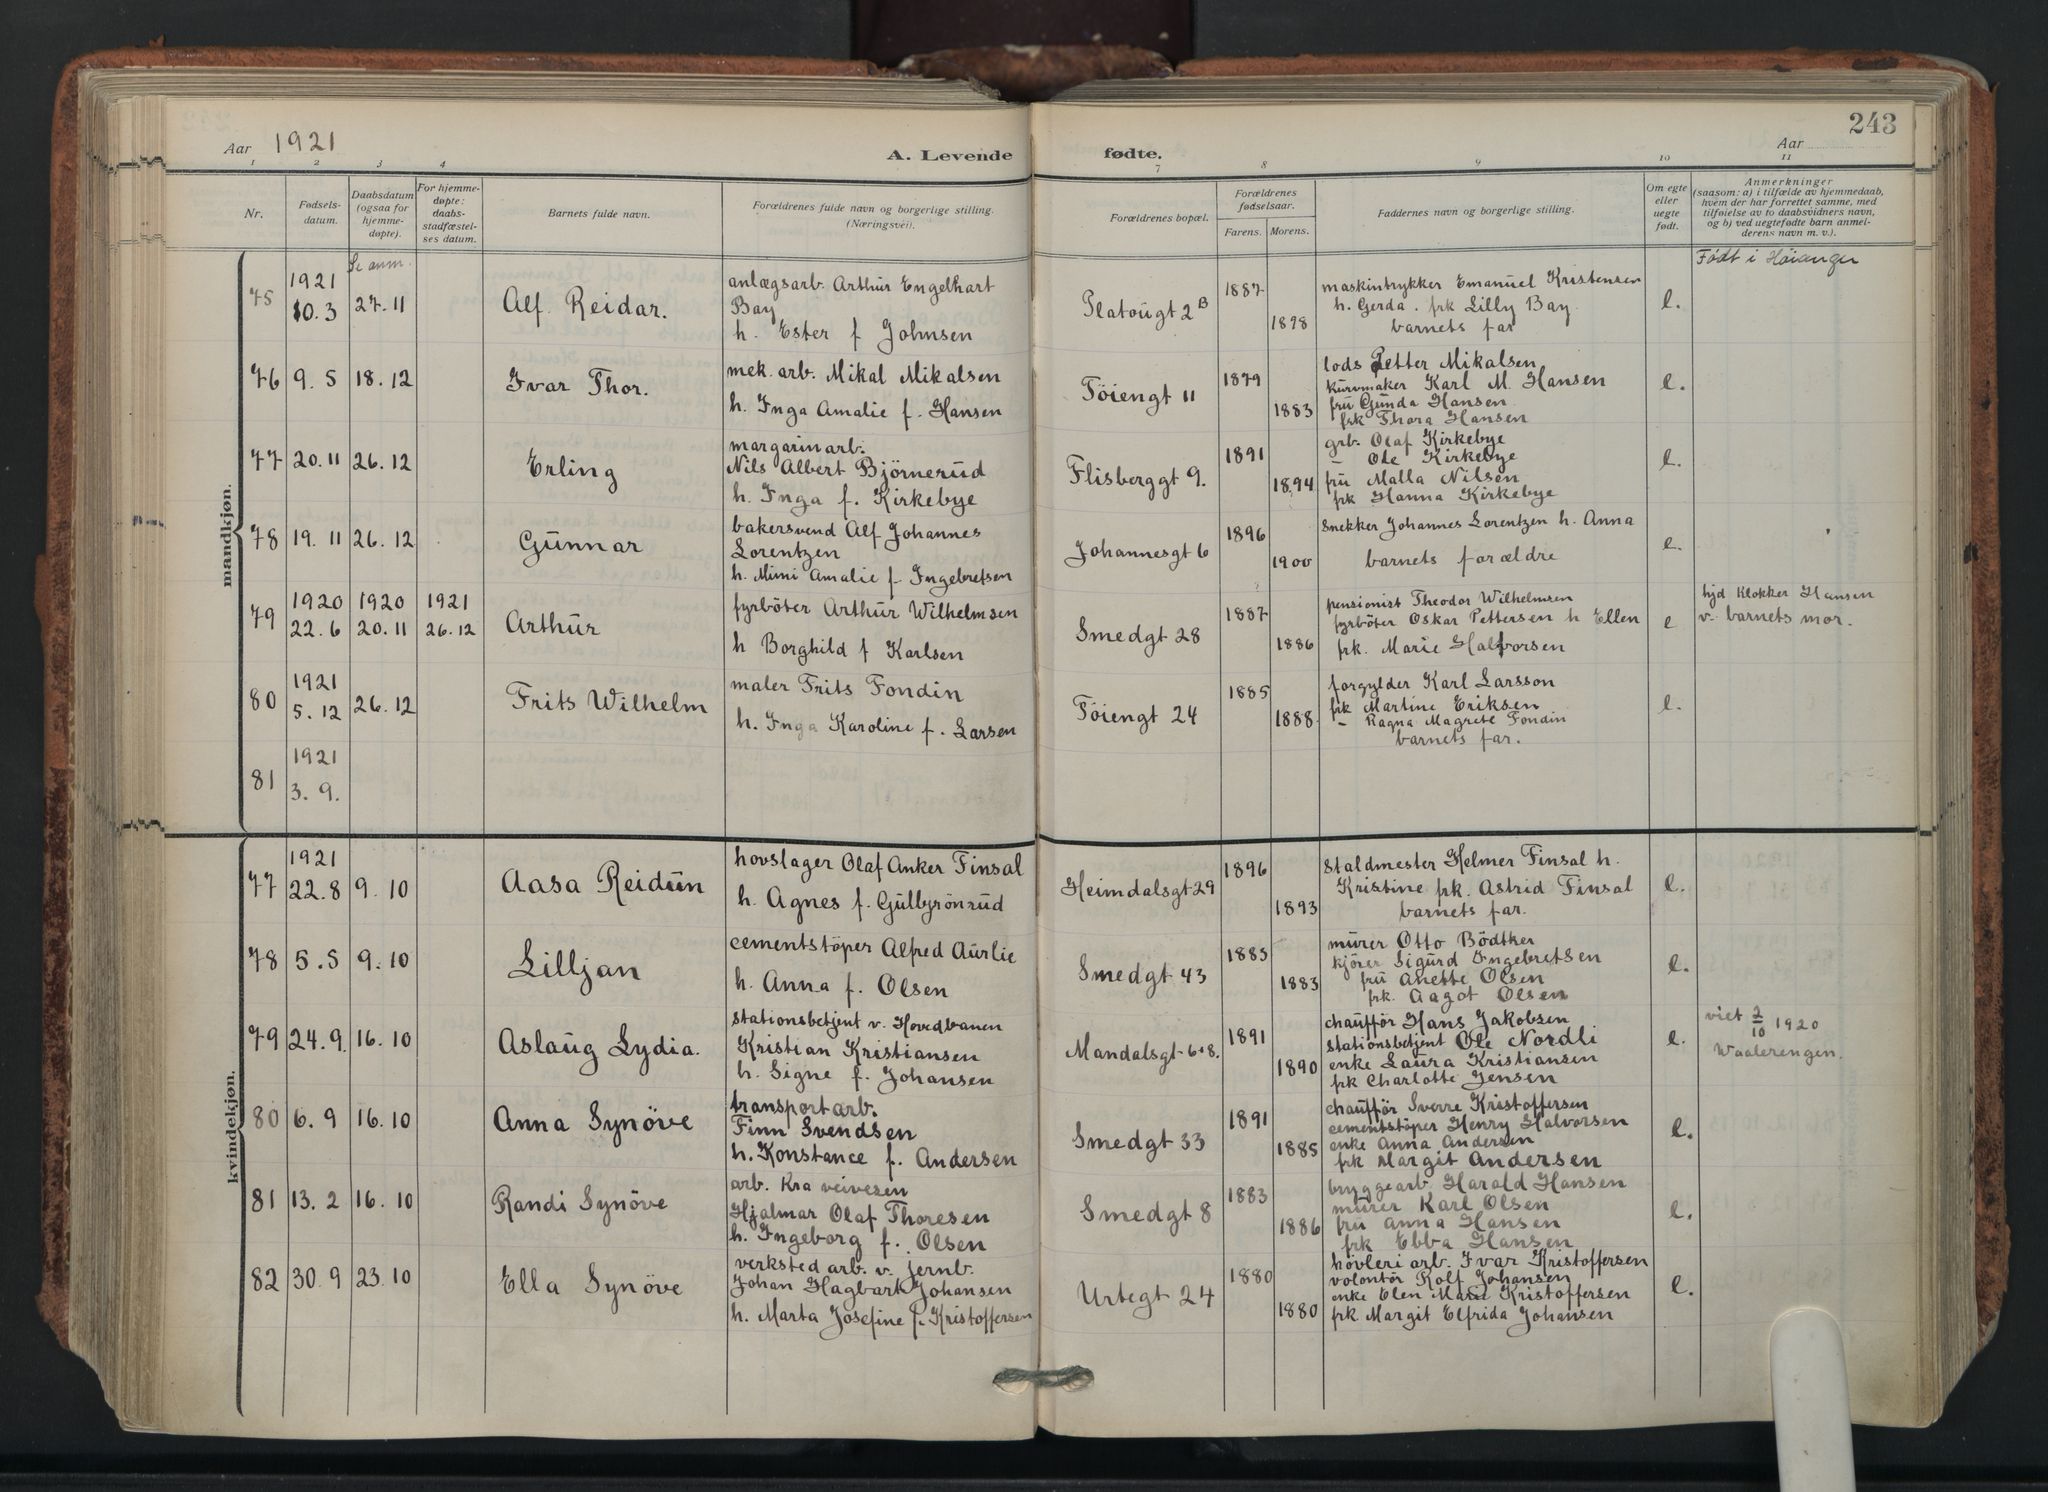 243
Aar 1921
A. Levende fødte.
Aar
1 2 3 4 7 8 9 10 11
Nr.
Fødsels-datum.
Daabsdatum (ogsaa for hjemme-døpte).
For hjemme-døpte: daabs-stadfæstel-ses datum.
Barnets fulde navn.
Forældrenes fulde navn og borgerlige stilling. (Næringsvei).
Forældrenes bopæl.
Forældrenes fødselsaar.
Farens. Morens.
Faddernes navn og borgerlige stilling.
Om egte eller uegte født.
Anmerkninger
(saasom: a) i tilfælde av hjemmedaab, hvem der har forrettet samme, med tilføielse av to daabsvidners navn, og b) ved uegtefødte barn anmel-derens navn m. v.).
maandkjøn.
Se anm.
75 1921 10.3 27.11 Alf Reidar.
anlægsarb. Arthur Engelhart
Bay
h. Ester f Johnsen
Platougt 2B 1887 1898
maskintrykker Emanuel Kristensen
h. Gerda. frk Lilly Bay
barnets far
e.
Født i Høianger
76 9.5 18.12 Ivar Thor.
mek. arb. Mikal Mikalsen
h. Inga Amalie f. Hansen
Töiengt 11 1879 1883
lods Petter Mikalsen
kurvmaker Karl M. Hansen
fru Gunda Hansen
frk Thora Hansen
e.
77 20.11 26.12 Erling
margarinarb.
Nils Albert Björnerud
h. Inga f. Kirkebye
Flisberggt 9. 1891 1894
grb. Olaf Kirkebye
– Ole Kirkebye
fru Malla Nilsen
frk Hanna Kirkebye
e.
78 19.11 26.12 Gunnar
bakersvend Alf Johannes
Lorentzen
h. Mimi Amalie f Ingebretsen
Johannesgt 6 1896 1900
Snekker Johannes Lorentzen h. Anna
barnets forældre
e.
79 1920 22.6 1920 20.11 1921 26.12 Arthur
fyrböter Arthur Wilhelmsen
h Borghild f Karlsen
Smedgt 28 1887 1886
pensionist Theodor Wilhelmsen
fyrböter Oskar Pettersen h Ellen
frk. Marie Halvorsen
e
hjd klokker Hansen
v. barnets mor.
80 1921 5.12 26.12 Frits Wilhelm
maler Frits Fondin
h. Inga Karoline f. Larsen
Töiengt 24 1885 1888
forgylder Karl Larsson
frk Martine Eriksen
– Ragna Magrete Fondin
barnets far.
e.
81 1921 3.9.
kvindekjøn.
77 1921 22.8 9.10 Aasa Reidun
hovslager Olaf Anker Finsal
h. Agnes f. Gulbyrönrud
Heimdalsgt 29 1896 1893
Staldmester Helmer Finsal h.
Kristine frk. Astrid Finsal
barnets far.
e.
78 5.5 9.10 Lilljan
cementstöper Alfred Aurlie
h. Anna f. Olsen
Smedgt 43 1885 1883
murer Otto Bödtker
kjörer Sigurd Ingebretsen
fru Anette Olsen
frk. Aagot Olsen
e.
79 24.9. 16.10 Aslaug Lydia.
stationsbetjent v. Hovedbanen
Kristian Kristiansen
h. Signe f. Johansen
Mandalsgt 6+8. 1891 1890
chaufför Hans Jakobsen
stationsbetjent Ole Nordli
enke Laura Kristiansen
frk Charlotte Jensen
e.
viet 2/10 1920
Waalerengen.
80 6.9 16.10 Anna Synöve
transportarb.
Finn Svendsen
h. Konstance f. Andersen
Smedgt 33 1891 1885
chaufför Sverre Kristoffersen
cementstöper Henry Halvorsen
enke Anna Andersen
frk Margit Andersen
e.
81 13.2 16.10 Randi Synöve
arb. Kra veivesen
Hjalmar Olaf Thoresen
h. Ingeborg f. Olsen
Smedgt 8 1883 1886
bryggearb. Harald Hansen
murer Karl Olsen
fru Anna Hansen
frk Ebba Hansen
e.
82 30.9 23.10 Ella Synöve
verksted arb. v. jernb.
Johan Hagbart Johansen
h. Marta Josefine f. Kristoffersen
Urtegt 24 1880 1880
hövleri arb. Ivar Kristoffersen
volontör Rolf Johansen
enke Elen Marie Kristoffersen
frk. Margit Elfrida Johansen
e.